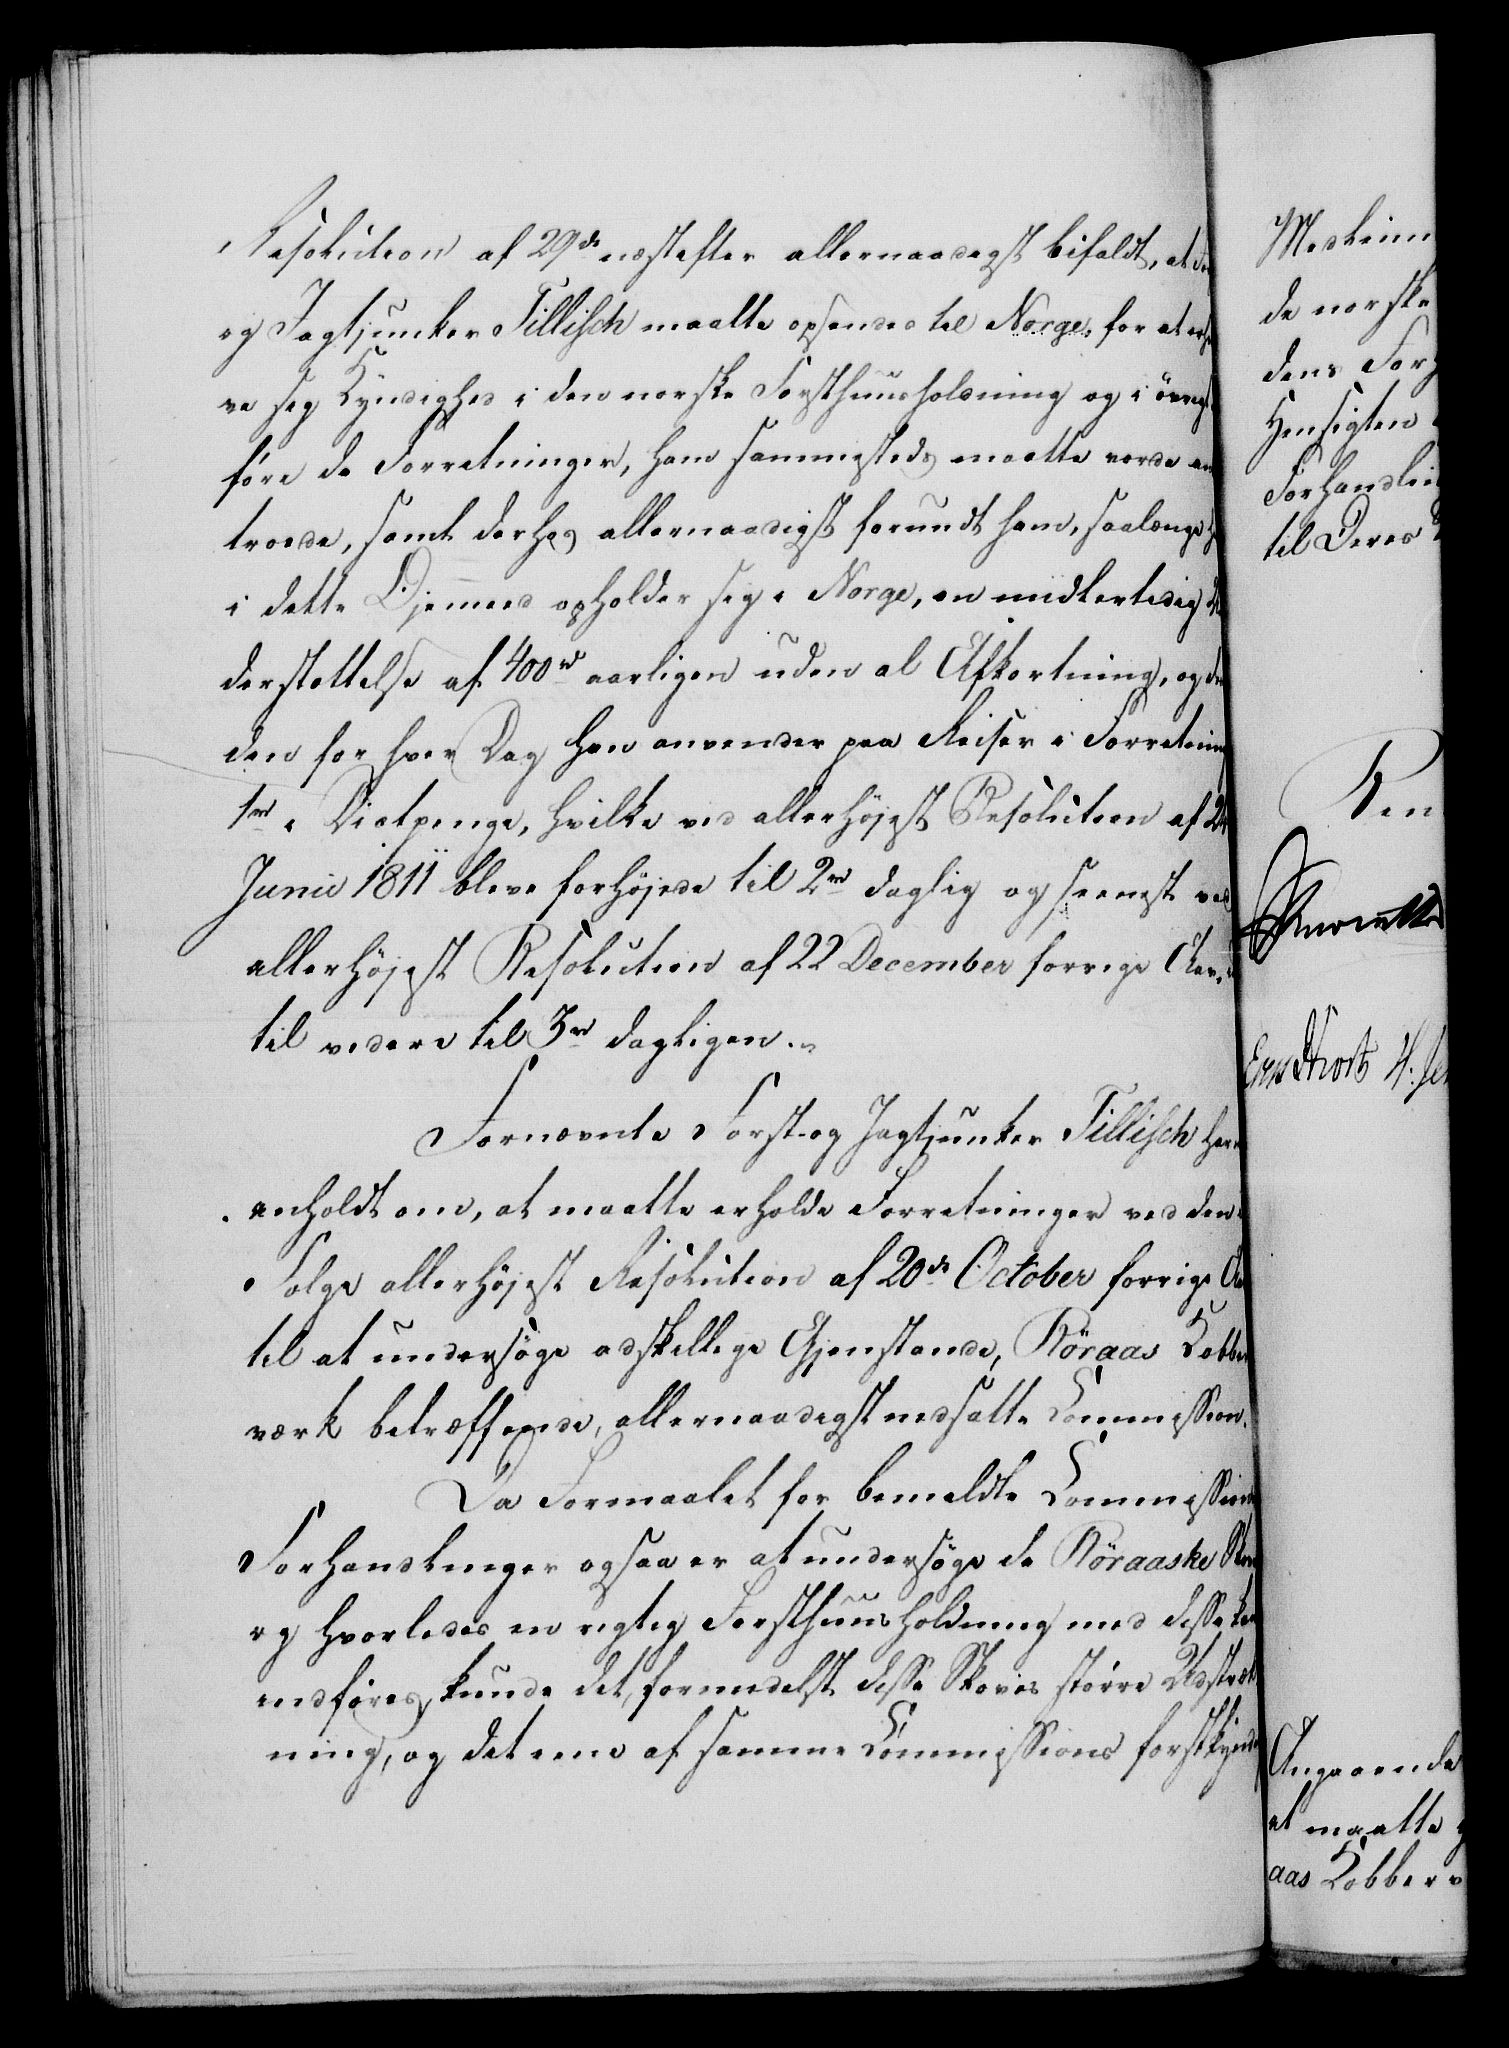 Resolution af 29de næstefter allernaadigst bifaldt, at
og Jagtjunker Tillisch maatte opsendes til Norge, for at
ve sig Kyndighed i den norske Forsthuusholdning og i övrigt
före de Forretninger, ham sammesteds maatte vorde an
troede, samt derhos allernaadigst forundt ham, saalænge
i dette Öjemeed opholder sig i Norge, en midlertidig
derstøttelse af 400 rd aarligen uden al Afkortning, og
den for hver Dag han anvender paa Reiser i Forretning
1 rd i Diætpenge, hvilke ved allerhöjest Resolution af 24
Junii 1811 bleve forhöjede til 2 rd daglig og seenest ved
allerhöjest Resolution af 22 December forrige Aar,
til videre til 3 rd dagligen.
Fornævnte Forst- og Jagtjunker Tillisch har
anholdt om, at maatte erholde Forretninger ved den i
Følge allerhöjest Resolution af 20de October forrige Aar
til at undersöge adskillige Gjenstande, Röraas Kobber
værk betræffende, allernaadigst nedsatte Commission.
Da Formaalet for bemeldte Commissions
Forhandlinger ogsaa er at undersöge de Röraaske Skove
og hvorledes en rigtig Forsthuusholdning med disse kan
indföres, kunde det, formedelst disse Skoves större Udstræk
ning, og det ene af samme Commissions forstkyndige
de norske
dens For
Hensigten
Forhandlin
til Deres
Ren
Angaaende
at maatte
aas Kobberv